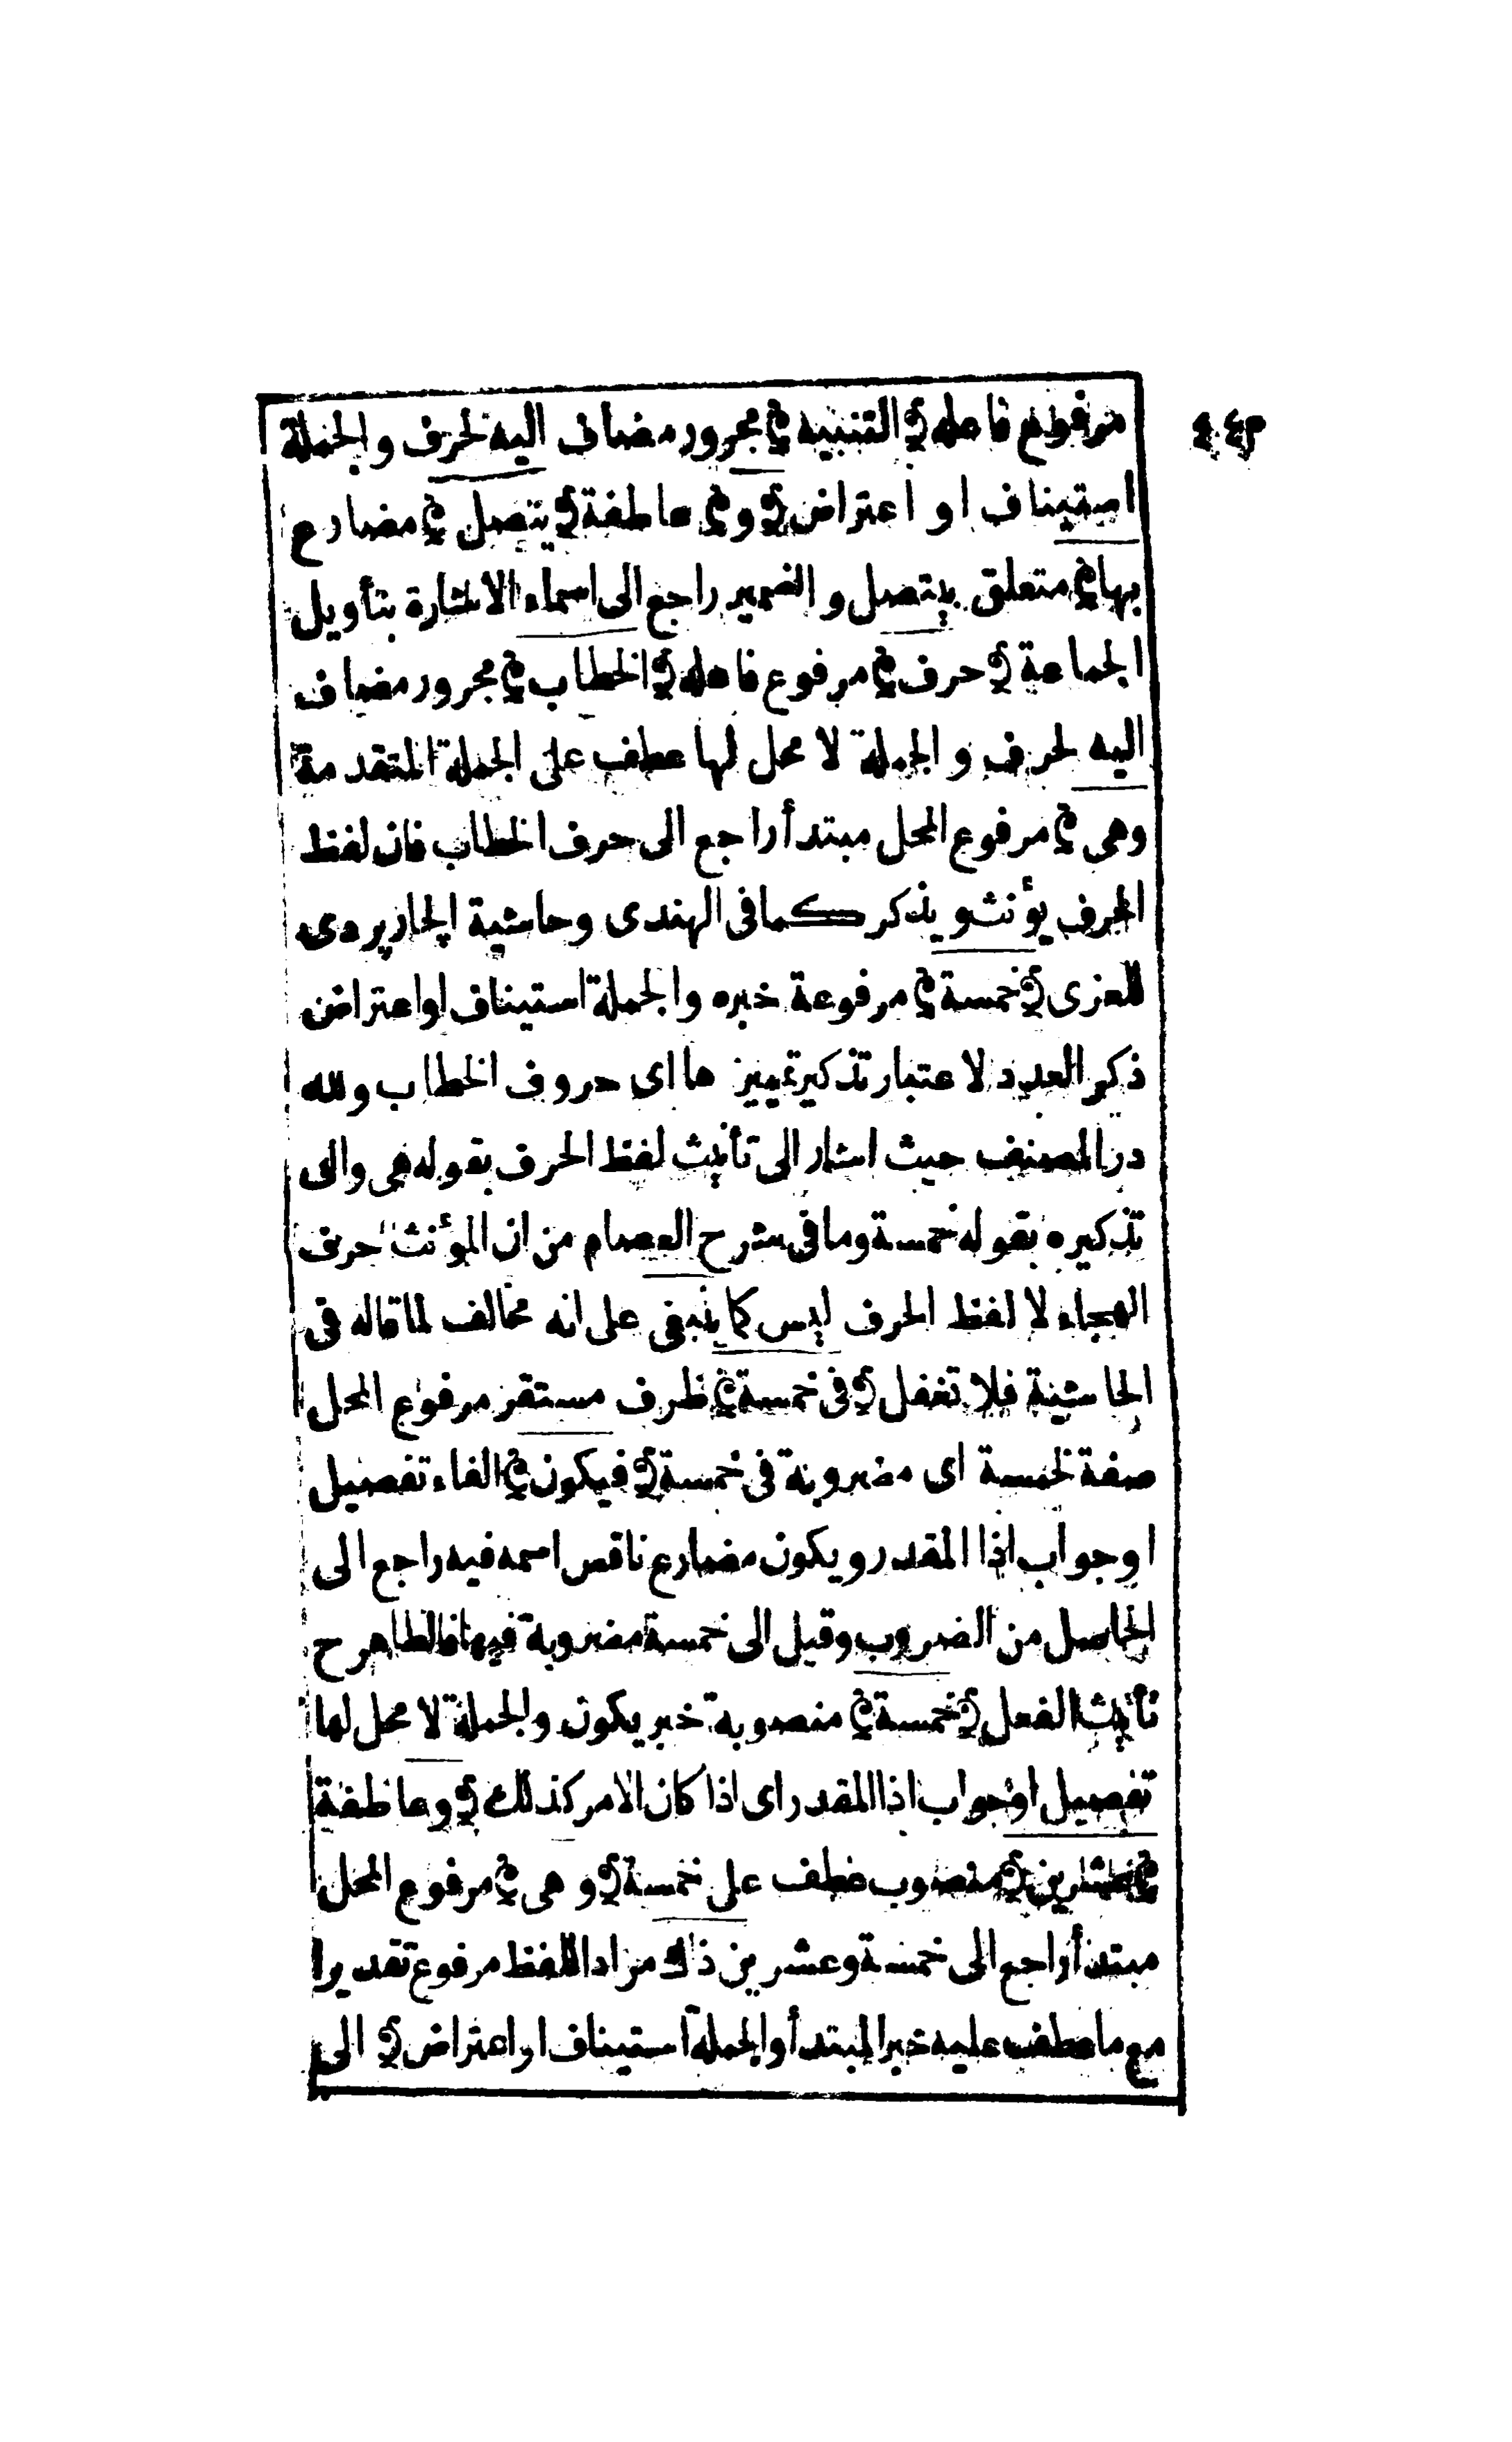 مرفوع فاعله ﴿ التنبيه ﴾ مجرور مضاف اليه لحرف والجملة
استيناف او اعتراض ﴿ و ﴾ عاطفة ﴿ يتصل ﴾ مضارع
بها ﴾ متعلق بيتصل والضمير راجع الى اسماء الاشارة بتأويل
الجماعة ﴿ حرف ﴾ مرفوع فاعله ﴿ الخطاب ﴾ مجرور مضاف
اليه لحرف والجملة لا محل لها عطف على الجملة المتقدمة
وهى ﴾ مرفوع المحل مبتدأ راجع الى حرف الخطاب فان لفظ
الحرف يؤنث ويذكر كما فى الهندى وحاشية الچارپردى
للعزى ﴿ خمسة ﴾ مرفوعة خبره والجملة استيناف او اعتراض
ذكر العدد لاعتبار تذكير تمييزها اى حروف الخطاب ولله
در المصنف حيث اشار الى تأنيث لفظ الحرف بقوله هى والى
تذكيره بقوله خمسة وما فى شرح العصام من ان المؤنث حرف
الهجاء لا لفظ الحرف ليس كما ينبغى على انه مخالف لما قاله فى
الحاشية فلا تغفل ﴿ فى خمسة ﴾ ظرف مستقر مرفوع المحل
صفة لخمسة اى مضروبة فى خمسة ﴿ فيكون ﴾ الفاء تفصيل
او جواب اذا المقدر ويكون مضارع ناقص اسمه فيه راجع الى
الحاصل من الضروب وقيل الى خمسة مضروبة فيها فالظاهر ح
تأنيث الفعل ﴿ خمسة ﴾ منصوبة خبر يكون والجملة لا محل لها
تفصيل او جواب اذا المقدر اى اذا كان الامر كذلك ﴿ و عاطفة
﴾ عشرين ﴿ منصوب عطف على خمسة ﴿ و هى ﴾ مرفوع المحل
مبتدأ راجع الى خمسة وعشرين ذاك مراد اللفظ مرفوع تقديرا
مع ما عطف عليه خبر المبتدأ والجملة استيناف او اعتراض ﴿ الى